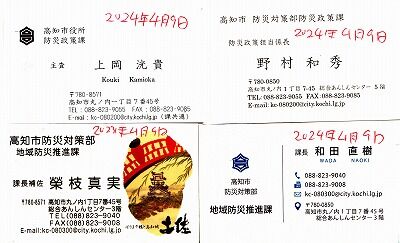 2024年4月9日
高知市役所
防災政策課
主査 上岡 洸貴
Kouki Kamioka
〒780-8571
高知市丸ノ内一丁目7番45号
TEL : 088-823-9055 FAX : 088-823-9085
E-mail : kc-080200@city.kochi.lg.jp (課共通)
高知市 防災対策部防災政策課
2024年4月9日
防災政策担当係長
野村 和秀
〒780-0850
高知市丸ノ内1丁目7-45 総合あんしんセンター5階
TEL: 088-823-9055 / FAX: 088-823-9085
E-mail : kc-080200@city.kochi.lg.jp
2024年4月9日
高知市防災対策部
地域防災推進課
課長補佐 榮枝 真実
〒780-8571 高知市丸ノ内1丁目7番45号
総合あんしんセンター3階
TEL(088)823-9040
FAX(088)823-9008
土佐
2024年4月9日
課長 和田 直樹
WADA NAOKI
高知市
防災対策部
地域防災推進課
088-823-9040
088-823-9008
kc-080300@city.kochi.lg.jp
〒780-8571
高知市丸ノ内1丁目7番45号
総合あんしんセンター3階